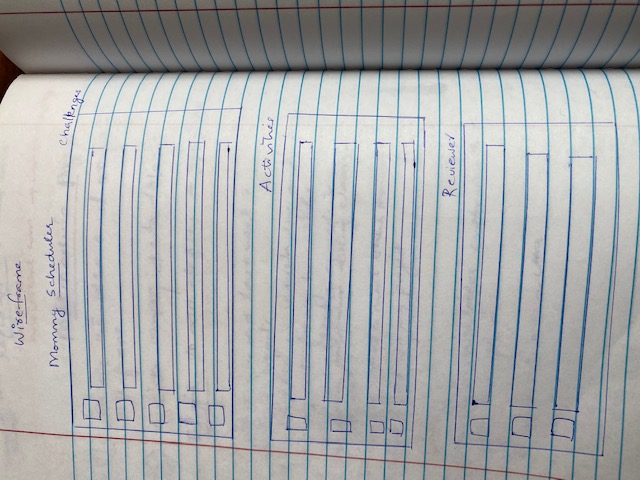 Wire-frame
Mommy Scheduler
Challenges
Activities
Reviewer